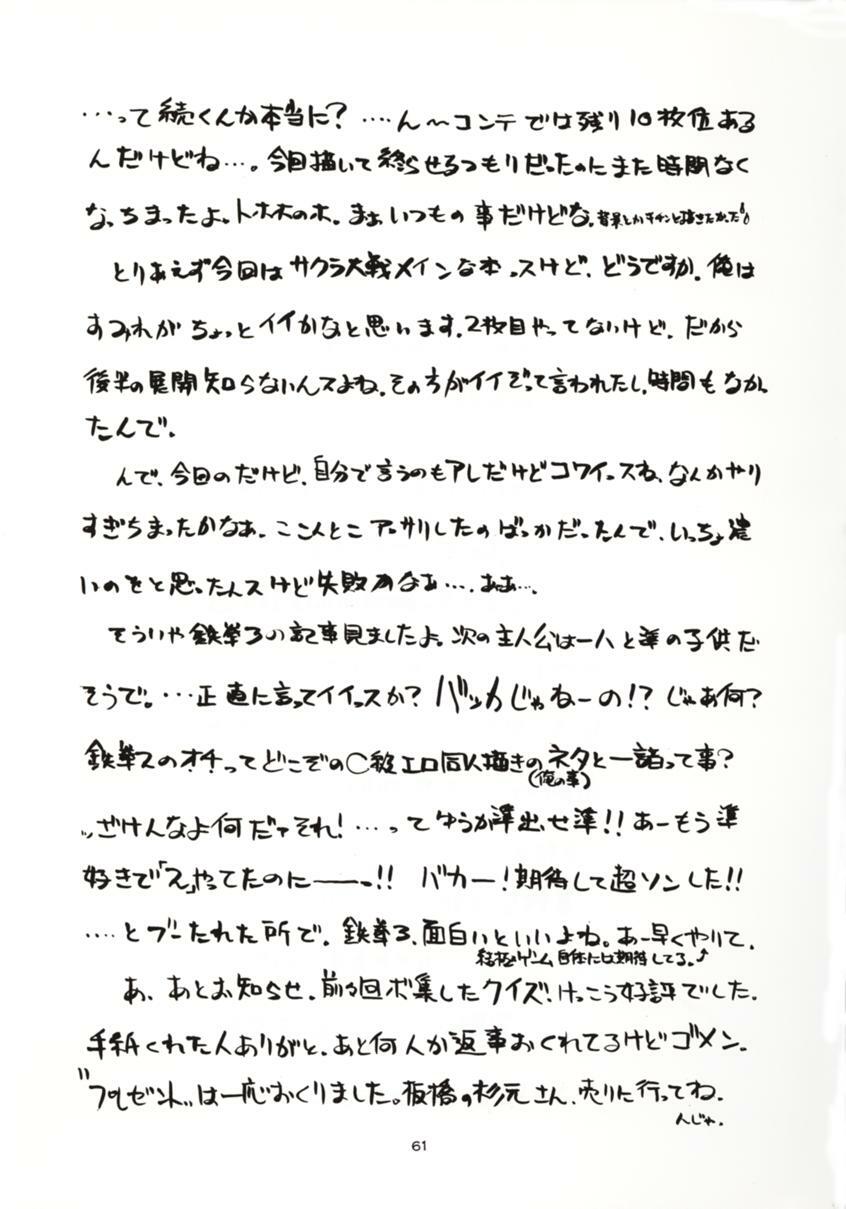 …って続くんか本当に?‥‥ん〜コンテでは残り10枚位ある
んだけどね…。今回描いて終らせるつもりだったのにまた時間なく
なっちまったよ。トホホのホ。まぁいつもの事だけどな。背景とかキチンと描きたかった
とりあえず今回はサクラ大戦メインな本っスけど、どうですか。俺は
すみれがちょっとイイかなと思います。2枚目やってないけど。だから
後半の展開知らないんスよね。その方がイイぞって言われたし、時間もなかっ
たんで。
んで、今回のだけど、自分で言うのもアレだけどコワイっスね、なんかやり
すぎちまったかなぁ。ここんとこアッサリしたのばっかだったんで、いっちょ濃
いのをと思ったんスけど失敗かなぁ…。ああ…。
そういや鉄拳3の記事見ましたよ。次の主人公は一八と準の子供だ
そうで。…正直に言ってイイっスか?バッカじゃねーの!?じゃあ何?
鉄拳2のオチってどこぞの〇級エロ同人描きのネタと一諸って事?
(俺の事)
っざけんなよ何だァそれ!…ってゆうか準出せ準!!あーもう準
好きで「2」やってたのに――っ!!バカー!期待して超ソンした!!
‥‥とブーたれた所で。鉄拳3、面白いといいよね。あー早くやりて。
結極ゲーム自体には期待してる。
あ、あとお知らせ。前々回ボ集したクイズ!けっこう好評でした。
手紙くれた人ありがと。あと何人か返事おくれてるけどゴメン。
"プレゼント"は一応おくりました。板橋の杉元さん、売りに行ってね。
んじゃ.
61